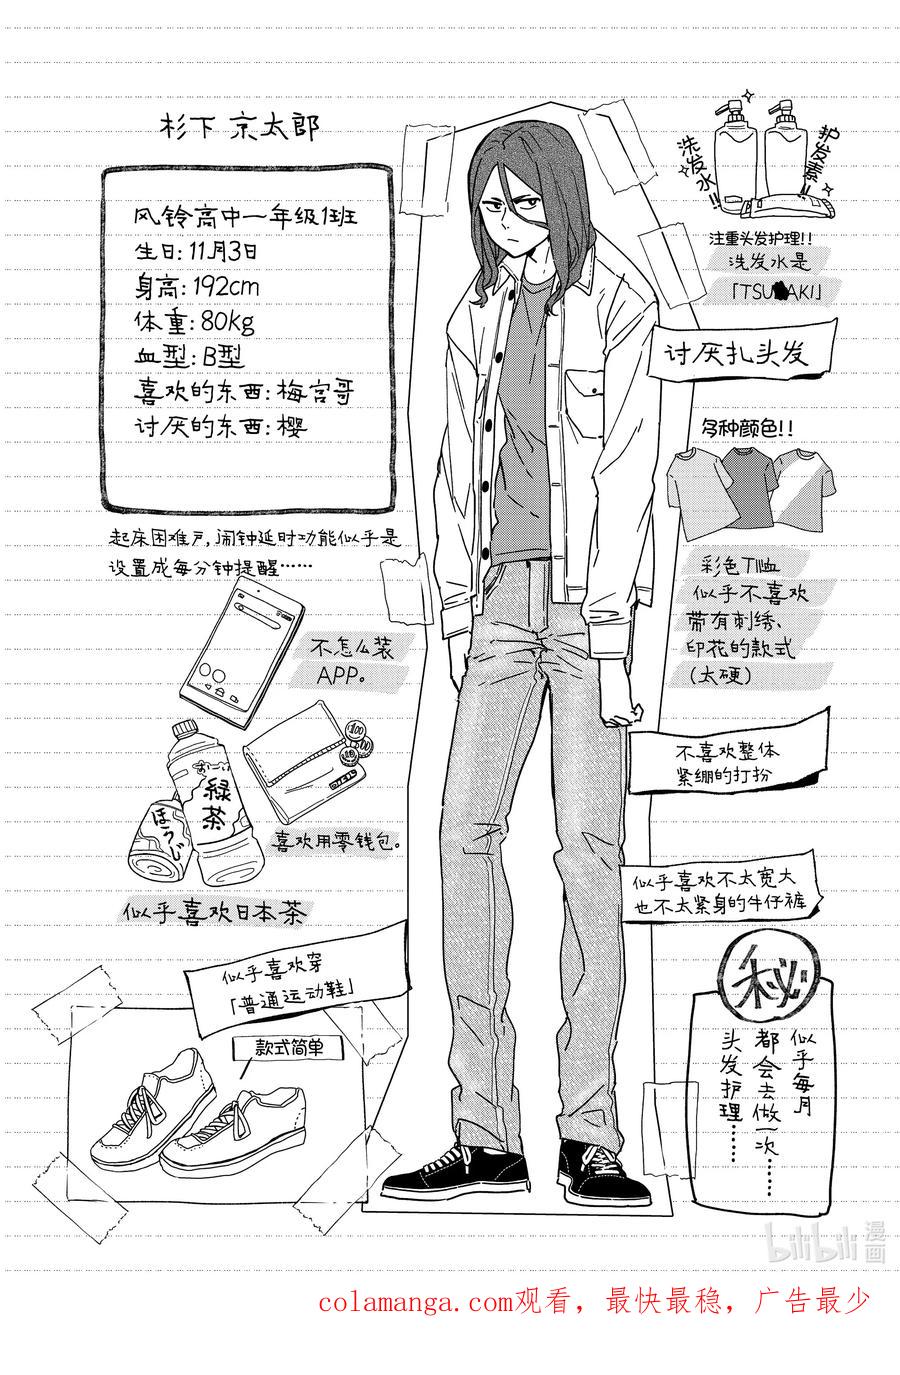 杉下 京太郎
风铃高中一年级1班
生日: 11月3日
身高: 192cm
体重: 80kg
血型: B型
喜欢的东西: 梅宫哥
讨厌的东西: 樱
起床困难户, 闹钟延时功能似乎是
设置成每分钟提醒……
不怎么装
APP。
100
100
お～い
緑茶
ほうじ
喜欢用零钱包。
似乎喜欢日本茶
似乎喜欢穿
「普通运动鞋」
款式简单
洗发水!!
护发素!!
注重头发护理!!
洗发水是
「TSUBAKI」
讨厌扎头发
多种颜色!!
彩色T恤
似乎不喜欢
带有刺绣、
印花的款式
(太硬)
不喜欢整体
紧绷的打扮
似乎喜欢不太宽大
也不太紧身的牛仔裤
秘
似乎每月
都会去做一次……
头发护理……
bilibili 漫画
colamanga.com观看，最快最稳，广告最少